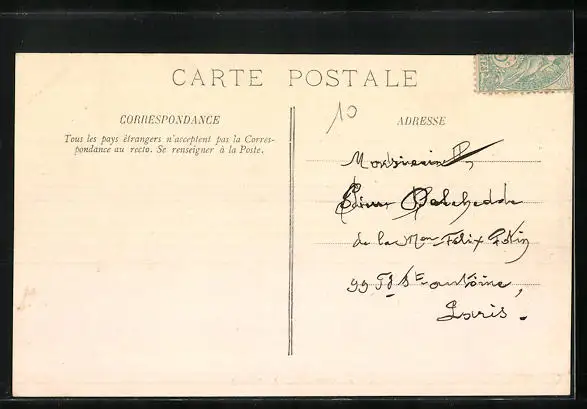 CARTE POSTALE
CORRESPONDANCE
Tous les pays étrangers n'acceptent pas la Corres-
pondance au recto. Se renseigner à la Poste.
10
ADRESSE
Monsieur
de la Mon Félix Potin
99 Fg St-antoine,
Paris.